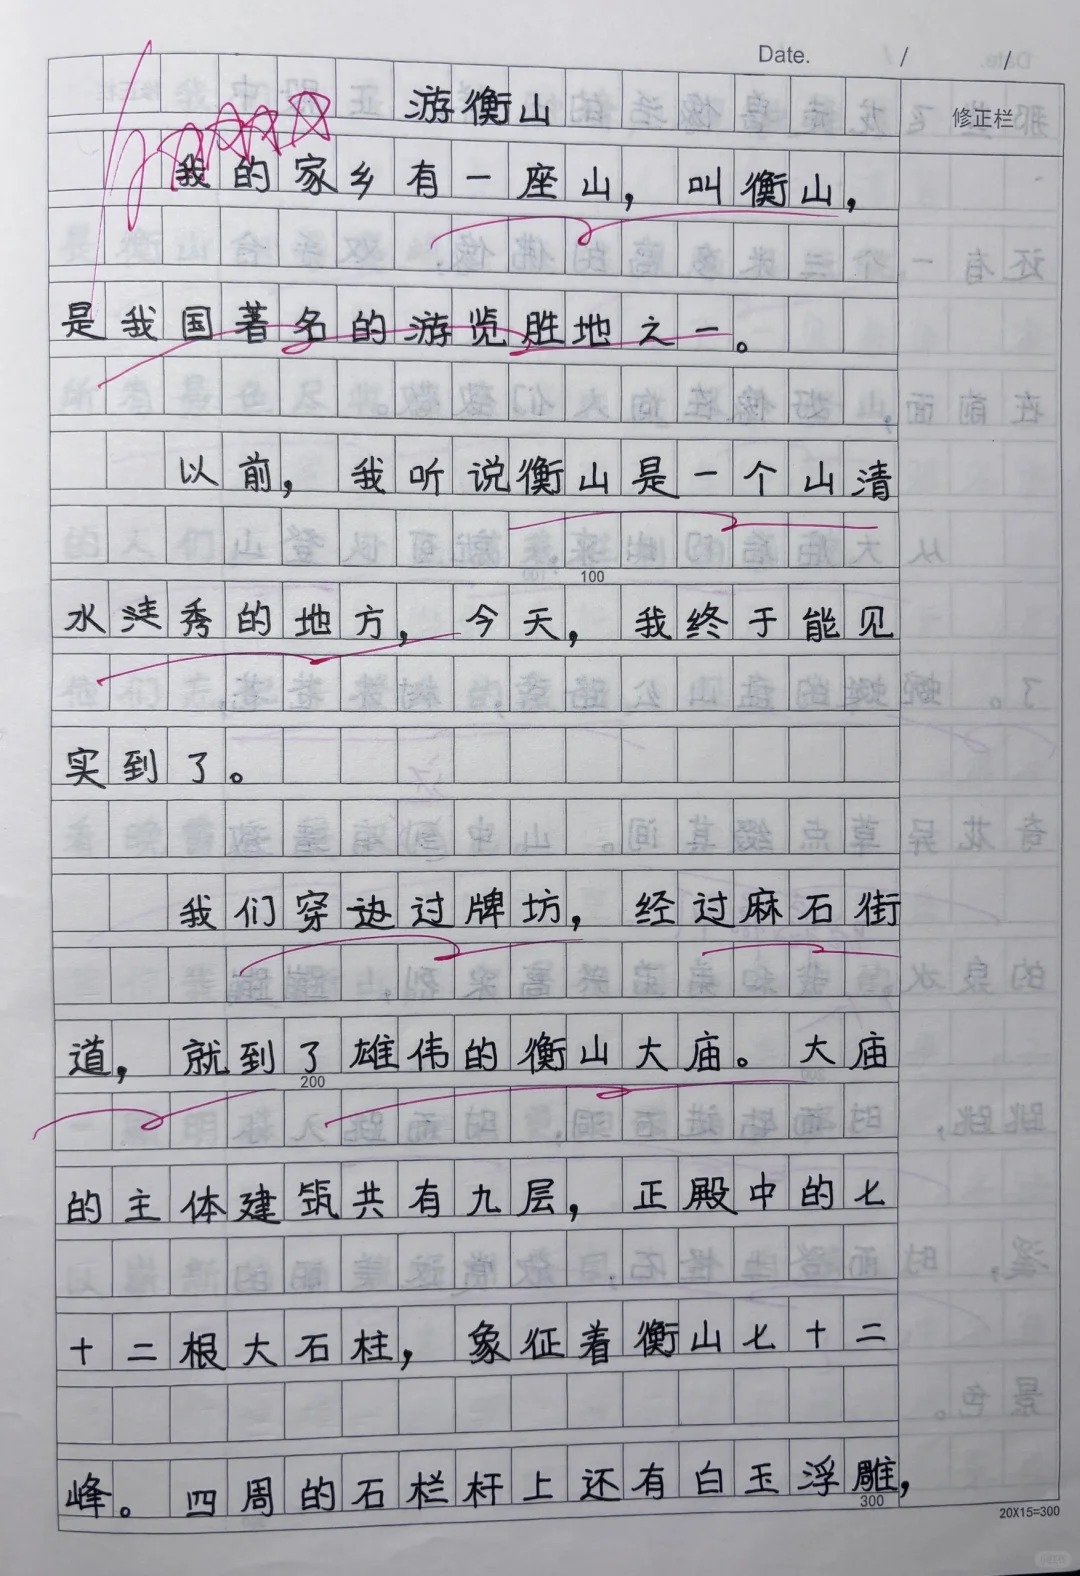 Date.    /    /
游衡山
修正栏
我的家乡有一座山，叫衡山，
是我国著名的游览胜地之一。
以前，我听说衡山是一个山清
100
水秀的地方，今天，我终于能见
实到了。
我们穿过牌坊，经过麻石街
道，就到了雄伟的衡山大庙。大庙
200
的主体建筑共有九层，正殿中的七
十二根大石柱，象征着衡山七十二
峰。四周的石栏杆上还有白玉浮雕，
300
20X15=300